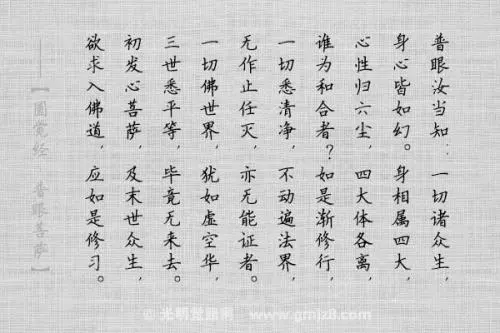 普眼汝当知：一切诸众生，
身心皆如幻。身相属四大，
心性归六尘，四大体各离，
谁为和合者？如是渐修行，
一切悉清净，不动遍法界，
无作止任灭，亦无能证者。
一切佛世界，犹如虚空华，
三世悉平等，毕竟无来去。
初发心菩萨，及末世众生，
欲求入佛道，应如是修习。
——【圆觉经 普眼菩萨】
www.gmjz8.com